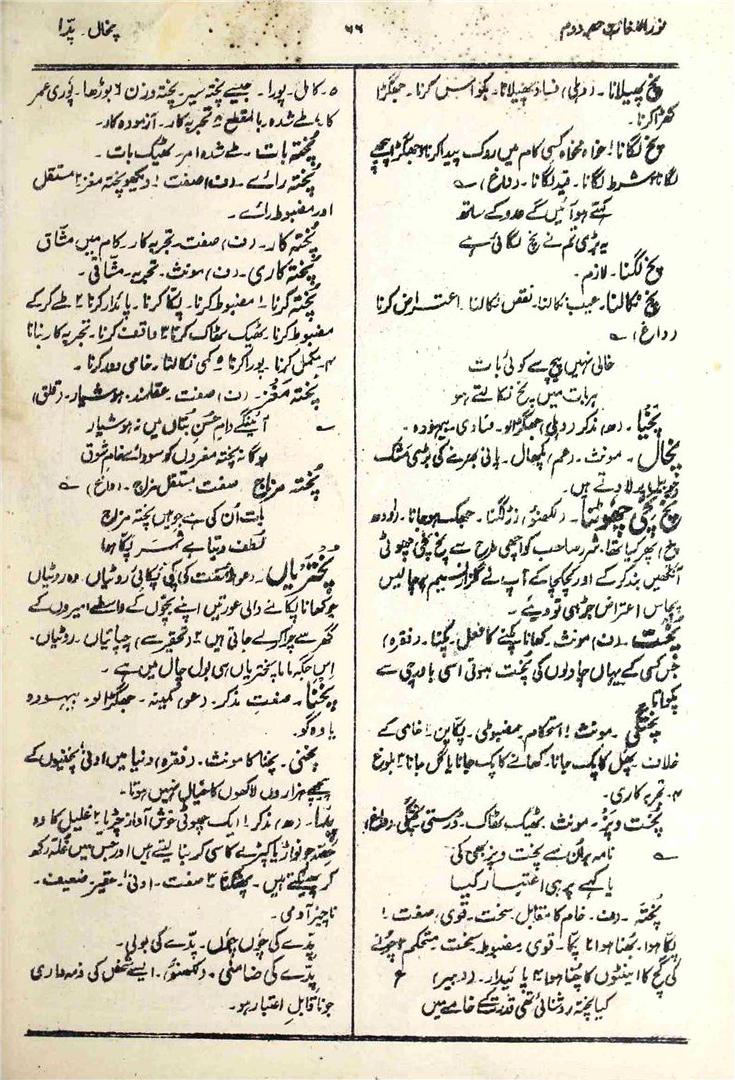 نور اللغات حصہ دوم
۶۶
پخال۔ پدّا
پخ پھیلانا۔ (دہلی) فساد پھیلانا۔ بکواس کرنا۔ جھگڑا
کھڑا کرنا۔
پخ لگانا ! خواہ مخواہ کسی کام میں روک پیدا کرنا ۲ جھگڑا پیچھے
لگانا ۳ شرط لگانا۔ قید لگانا۔ (داغ) ؎
کہتے ہو آئیں گے عدو کے ساتھ
یہ بڑی تم نے پخ لگائی ہے
پخ لگنا۔ لازم۔
پخ نکالنا۔ عیب نکالنا۔ نقص نکالنا۔ اعتراض کرنا
(داغ) ؎
خالی نہیں پیچ سے کوئی بات
ہر بات میں پخ نکالتے ہو
پخیا۔ (ھ) مذکر (دہلی) جھگڑالو۔ فسادی۔ بیہودہ۔
پخال۔ مونث۔ (عم) پکھال۔ پانی بھرنے کی بڑی مشک
جو بیل پر لادتے ہیں۔
پخ پخی چھوٹنا۔ (لکھنؤ) زرگنا۔ جھک ہوجانا۔ (اودھ
پنچ) پھر کیا تھا۔ شرر صاحب کو اچھی طرح سے پخ پخی چھوٹی
آنکھیں بند کر کے اور کچکچا کے آپ نے گلزار نسیم پر چالیس
پچاس اعتراض جڑ ہی تو دیے۔
پُخت۔ (ف) مونث۔ کھانا پکنے کا فعل۔ پکنا۔ (فقرہ)
جس کسی کے یہاں چاولوں کی پُخت ہوتی اسی باورچی سے
پکواتا۔
پختگی۔ مونث ! استحکام۔ مضبوطی۔ پکّا پن ۲ خامی کے
خلاف۔ پھل کا پک جانا۔ کھانے کا پک جانا یا گل جانا ۳ بلوغ
۴۔ تجربہ کاری۔
پُخت و پز۔ مونث۔ ٹھیک ٹھاک۔ درستی۔ پختگی۔ (داغ)
؎ نامہ بر ان سے پخت و پز بھی کی
یا کہے پر ہی اعتبار کیا
پُختہ۔ (ف۔ خام کا مقابل۔ سخت۔ قوی) صفت۔ !
پکا ہوا۔ بھُنا ہوا ۲ پکّا۔ قوی۔ مضبوط۔ سخت۔ مستحکم ۳ چونے
کی گچ کا۔ اینٹوں کا چُنا ہوا ۴ پائیدار۔ (دبیر) ؏
کیا پختہ روشنائی تھی قدرت کے خامے میں
۵۔ کامل۔ پورا۔ جیسے پختہ سیر۔ پختہ وزن ۶ بوڑھا۔ پوری عمر
کا ۷ طے شدہ۔ بالمقطع ۸ تجربہ کار۔ آزمودہ کار۔
پُختہ بات۔ طے شدہ امر۔ ٹھیک بات۔
پُختہ رائے۔ (ف) صفت ! دیکھو پختہ مغز ۲ مستقل
اور مضبوط رائے۔
پُختہ کار۔ (ف) صفت۔ تجربہ کار۔ کام میں مشّاق
پُختہ کاری۔ (ف) مونث۔ تجربہ۔ مشّاقی۔
پُختہ کرنا ! مضبوط کرنا۔ پکّا کرنا۔ پائدار کرنا ۲ طے کر کے
مضبوط کرنا۔ ٹھیک ٹھاک کرنا ۳ واقف کرنا۔ تجربہ کار بنانا
۴۔ مکمل کرنا۔ پورا کرنا ۵ کمی نکالنا۔ خامی دور کرنا۔
پختہ مغز۔ (ف) صفت۔ عقلمند۔ ہوشیار۔ (قلق)
؎ آئینگے دام حسن بتاں میں نہ ہوشیار
ہوگا نہ پختہ مغزوں کو سودائے خام شوق
پُختہ مزاج۔ صفت۔ مستقل مزاج۔ (داغ) ؎
بات اُن کی ہے جو ہیں پختہ مزاج
لطف دیتا ہے ثمر پکّا ہوا
پُختریاں۔ (عو) مونث۔ پکی پکائی روٹیاں۔ وہ روٹیاں
جو کھانا پکانے والی عورتیں اپنے بچّوں کے واسطے امیروں کے
گھر سے چرا کر لے جاتی ہیں ۲ (تحقیر سے) چپاتیاں۔ روٹیاں۔
اس جگہ ماما پختریاں ہی بول چال میں ہے۔
پخنا۔ صفت۔ مذکر۔ (عو) کمینہ۔ جھگڑالو۔ بیہودہ
یاوہ گو۔
پخنی۔ پخنا کا مونث۔ (فقرہ) دنیا میں ادنیٰ پخنیوں کے
پیچھے ہزاروں لاکھوں کا خیال نہیں ہوتا۔
پدّا۔ (ھ) مذکر ! ایک چھوٹی خوش آواز چڑیا ۲ غلیل کا وہ
حصّہ جو نواڑ یا کپڑے کا سی کر بنا لیتے ہیں اور جس میں غُلّہ رکھ
کر پھینکتے ہیں۔ پھٹکنا ۳ صفت۔ ادنیٰ۔ حقیر۔ ضعیف۔
ناچیز آدمی۔
پدّے کی چوں چوں۔ پدّے کی بولی۔
پدّے کی ضامنی۔ (لکھنؤ) ایسے شخص کی ذمہ داری
جو ناقابل اعتبار ہو۔